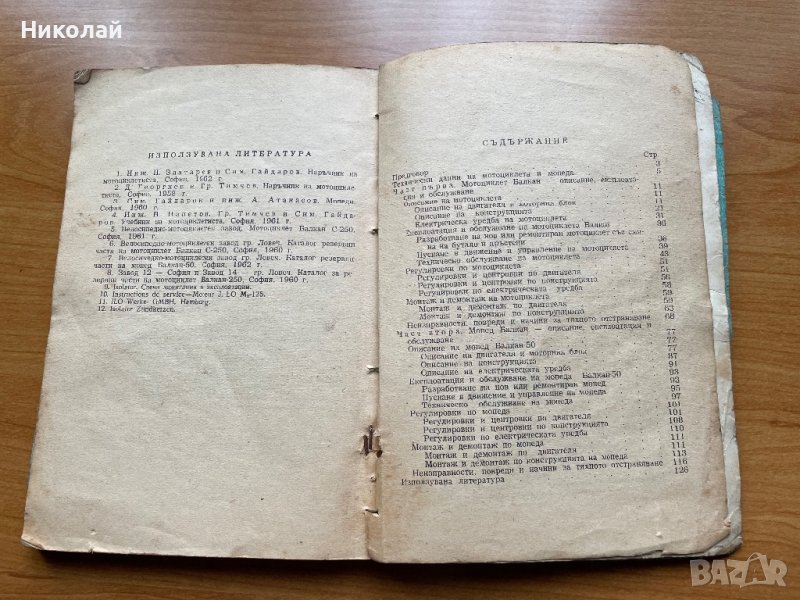 Николай
ИЗПОЛЗУВАНА ЛИТЕРАТУРА
1. Инж. П. Златарев и Сим. Гайдаров. Наръчник на
мотоциклетиста, София, 1962 г.
2. Д. Георгиев и Гр. Тимчев. Наръчник на мотоцикле-
тиста, София, 1958 г.
3. Сим. Гайдаров и инж. А. Атанасов. Мопеди,
София, 1960 г.
4. Инж. В. Напетов, Гр. Тимчев и Сим. Гайда-
ров. Учебник на мотоциклетиста, София, 1961 г.
5. Велосипедно-мотоциклетен завод. Мотоциклет Балкан С-250,
София, 1961 г.
6. Велосипедно-мотоциклетен завод гр. Ловеч. Каталог резервни
части на мотоциклет Балкан С-250, София, 1960 г.
7. Велосипедно-мотоциклетен завод гр. Ловеч. Каталог резервни
части за мопед Балкан-50, София, 1962 г.
8. Завод 12 — София и Завод 14 — гр. Ловеч. Каталог за ре-
зервни части на мотоциклет Балкан-250, София, 1960 г.
9. Isolator. Свещи
10. Instructions de service—Moteur J. LO M₂-175.
11. ILO-Werke GMBH, Hamburg.
12. Isolator Zündkerzen.
СЪДЪРЖАНИЕ
Стр
Предговор 3
Технически данни на мотоциклета и мопеда 5
Част първа. Мотоциклет Балкан — описание, експлоата-
ция и обслужване 11
Описание на мотоциклета 11
Описание на двигателя и моторния блок 11
Описание на конструкцията 21
Електрическа уредба на мотоциклета 31
Експлоатация и обслужване на мотоциклета Балкан 36
Разработване на нов или ремонтиран мотоциклет със смя-
на на бутало и пръстени 36
Пускане в движение и управление на мотоциклета 39
Техническо обслужване на мотоциклета 43
Регулировки по мотоциклета 51
Регулировки и центровки по двигателя 51
Регулировки и центровки по конструкцията 56
Регулировки по електрическата уредба 58
Монтаж и демонтаж на мотоциклета 59
Монтаж и демонтаж по двигателя 59
Монтаж и демонтаж по конструкцията 63
Неизправности, повреди и начини за тяхното отстраняване 68
Част втора. Мопед Балкан — описание, експлоатация и
обслужване 77
Описание на мопед Балкан-50 77
Описание на двигателя и моторния блок 77
Описание на конструкцията 87
Описание на електрическата уредба 91
Експлоатация и обслужване на мопеда Балкан-50 93
Разработване на нов или ремонтиран мопед 93
Пускане в движение и управление на мопеда 95
Техническо обслужване на мопеда 97
Регулировки по мопеда 101
Регулировки и центровки по двигателя 101
Регулировки и центровки по конструкцията 108
Регулировки по електрическата уредба 110
Монтаж и демонтаж по мопеда 111
Монтаж и демонтаж по двигателя 111
Монтаж и демонтаж по конструкцията на мопеда 113
Неизправности, повреди и начини за тяхното отстраняване 116
Използувана литература 126
BAZAR